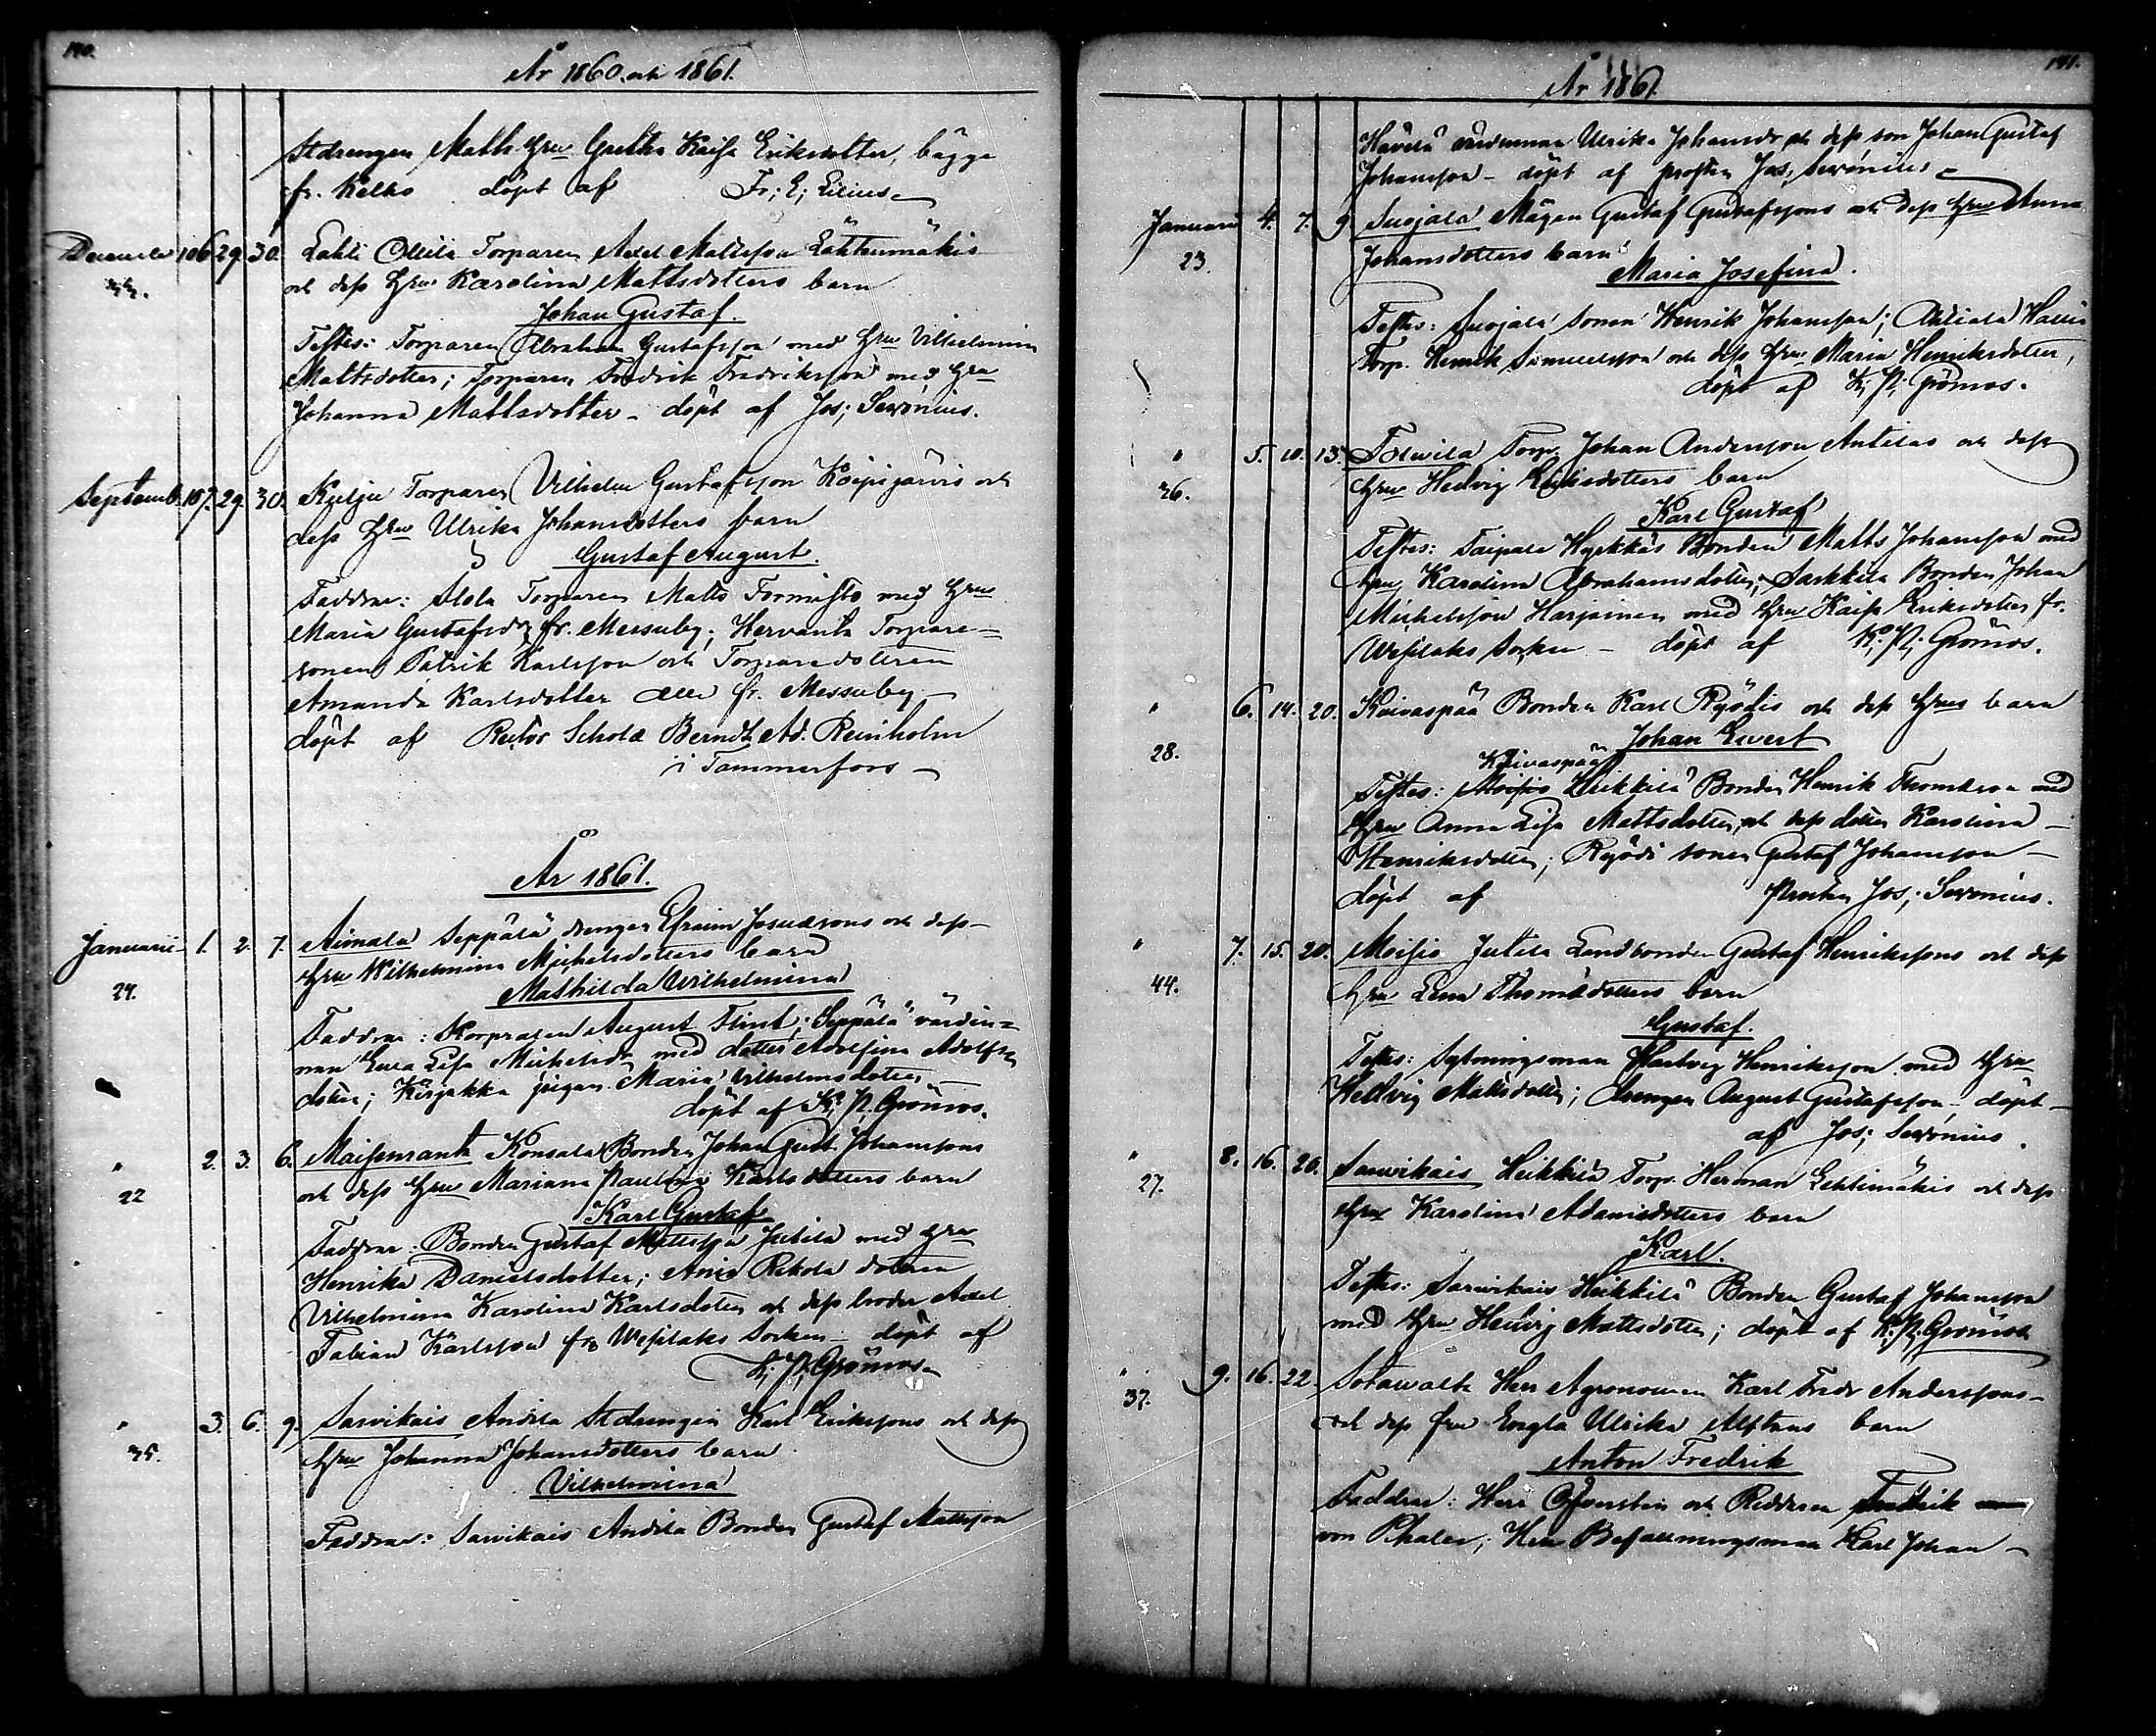 140.
År 1860. och 1861.
Stdrengen Matts hru Gretha Kaisa Eriksdotter, bägge
fr. Kelho döpt af Fr; E; Lilius
December 106 29. 30. Lahti Ollila Torparen Axel Mattsson Lähteenmäkis
och dess Hru Karolina Mattsdotters barn
Johan Gustaf.
Testes: Torparen Abraham Gustafsson med Hru Vilhelmina
Mattsdotter; Torparen Fredrik Fredriksson med Hru
Johanna Mattsdotter - döpt af Jos; Serónius.
Septemb. 107. 29. 30. Kulju Torparen Vilhelm Gustafsson Koipijärvis och
dess Hru Ulrika Johansdotters barn
Gustaf August.
Faddrar: Stola Torparen Matts Tormisto med Hru
Maria Gustafsdr fr. Messuby; Hervanta Torpare-
sonen Patrik Karlsson och Torparedottren
Amanda Karlsdotter alla fr. Messuby -
döpt af Rector Schola Berndt Ad. Reinholm
i Tammerfors -
År 1861.
Januarii 1. 2. 7. Aimala Seppälä drengen Efraim Josuæsons och dess
24. Hru Wilhelmina Michelsdotters barn
Mathilda Wilhelmina
Faddrar: Korpralen August Flint; Seppälä värdin=
nan Eva Lisa Mickelsdr med dotter Adolfina Adolfs
dotter; Kirjakka pigan Maria Vilhelmsdotter
döpt af K; P. Grönros.
" 2. 3. 6. Maisenranta Konsala Bonden Johan Gust. Johanssons
22 och dess Hru Mariana Paulina Karlsdotters barn
Karl Gustaf
Faddrar: Bonden Gustaf Mattsson Jutila med Hru
Henrika Danielsdotter; Anio Rekola dottren
Vilhelmina Karolina Karlsdotter och dess broder Axel
Fabian Karlsson frn Wesilaks Socken - döpt af
K; P; Grönros.
" 3. 6. 9. Sarvikais Andila Stdrengen Karl Erikssons och dess
35. Hru Johanna Johansdotters barn
Vilhelmina
Faddrar: Sarvikais Andila Bonden Gustaf Mattsson
141.
År 1861
Hävelä värdinnan Ulrika Johansdr och dess son Johan Gustaf
Johansson - döpt af prosten Jos; Serónius -
Januarii 4. 7. 9 Suojala Mågen Gustaf Gustafssons och dess Hru Anna
23. Johansdotters barn
Maria Josefina.
Testes: Suojala sonen Henrik Johansson; Ahtiala
Torp. Henrik Samuelsson och dess Hru Maria Henriksdotter,
döpt af K; P; Grönros.
" 5. 10. 13. Torp. Johan Andersson Antilas och dess
36. Hru Hedvig Eriksdotters barn
Karl Gustaf
Testes: Taipale Hyrkkäs Bonden Matts Johansson med
Hru Karolina Abrahamsdotter; Sarkkila Bonden Johan
Michelsson Harjainen med Hru Kaisa Eriksdotter fr.
Wesilaks Socken - döpt af K; P; Grönros.
" 6. 14. 20. Koivaspää Bonden Karl Ryödis och dess Hrus barn
28. Johan Evert
Koivaspää
Testes: Moisio Heikkilä Bonden Henrik Thomasson med
Hru Anna Lisa Mattsdotter, och dess dotter Karolina -
Henriksdotter; Ryödi sonen Gustaf Johansson -
döpt af Prosten Jos; Serónius.
" 7. 15. 20. Moisio Jutila Landbonden Gustaf Henrikssons och dess
44. Hru Lena Thomædotters barn
Gustaf.
Testes: Sytningsman Hartvig Henriksson med Hru
Hedvig Mattsdotter; drengen August Gustafsson, döpt -
af Jos; Serónius.
" 8. 16. 20. Sarvikais Heikkilä Torp. Herman Lehtimäkis och dess
27. Hru Karolina Adamsdotters barn
Karl.
Testes: Sarvikais Heikkilä Bonden Gustaf Johansson
med Hru Hedvig Mattsdotter; döpt af K; P; Grönros
" 9. 16. 22. Sotavalta Herr Agronomen Karl Fredr Anderssons -
37. och dess fru Engla Ulrika Alftans barn
Anton Fredrik
Faddrar: Herr Öfversten och Riddaren Fredrik
von Phaler; Herr Befallningsman Karl Johan -